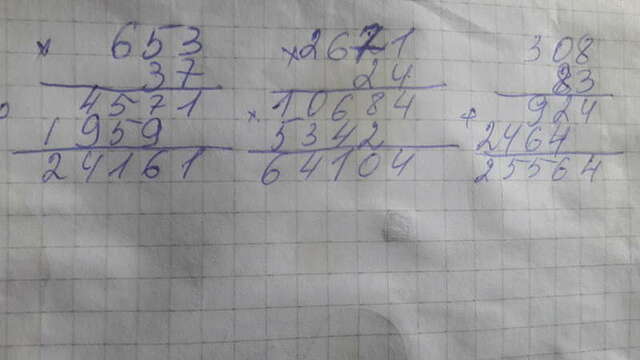 × 653 ×2671 308
37 24 83
4571 10684 924
1959 × 5342 + 2464
24161 64104 25564